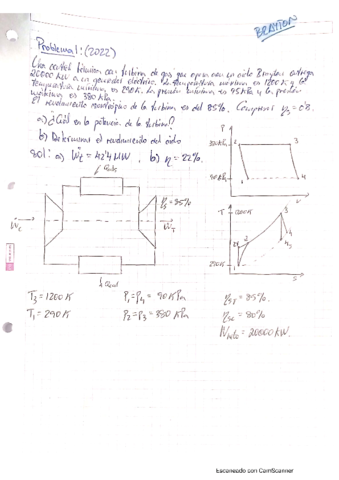 BRAYTON
Problema 1: (2022)
Una central térmica con turbina de gas que opera en un ciclo Brayton entrega
20000 kW a un generador eléctrico. La temperatura máxima es 1200 K y la
temperatura mínima es 290K. La presión mínima es 95 kPa y la presión
máxima es 380 kPa.
El rendimiento isentrópico de la turbina es del 85%. Compresor ηs=0'8.
a) ¿Cuál es la potencia de la turbina?
b) Determina el rendimiento del ciclo
Sol: a) Ẇt = 42'4 MW. b) η = 22%.
P
2
3
1
4
v
T
1200K
3
2
4
290K
1
s
ηs=85%
T3 = 1200 K
P1=P4 = 90 KPa
ηsT=85%.
T1 = 290K
P2=P3=380 KPa
ηsc=80%
Ẇneto= 20000 KW.
Escaneado con CamScanner